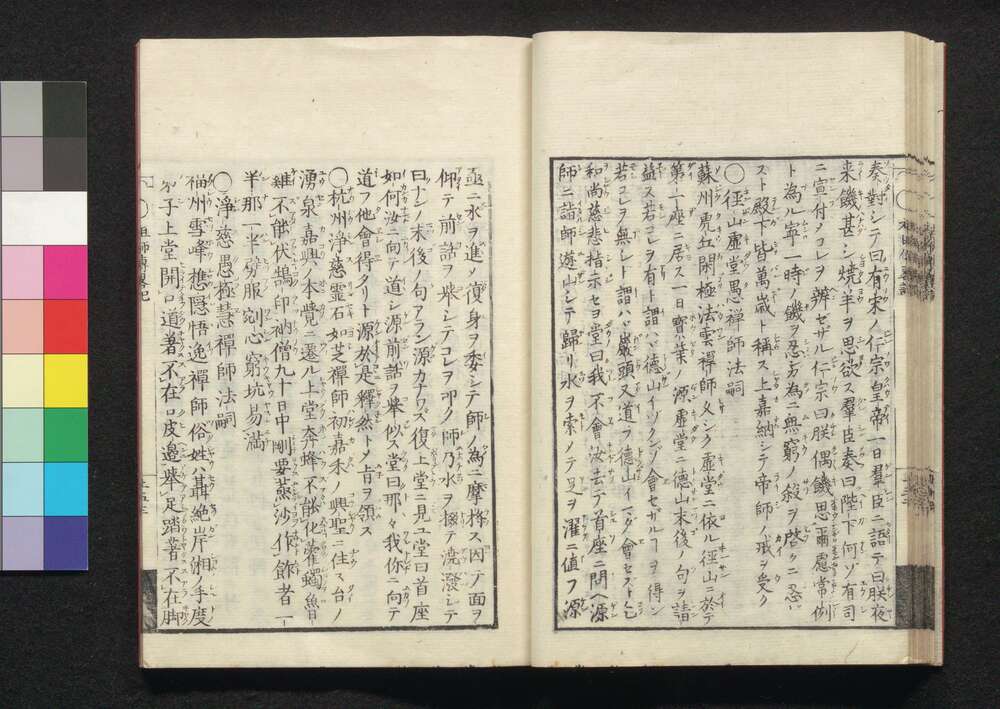 奏對シテ曰有宋ノ仁宗皇帝一日羣臣ニ語テ曰朕夜
来饑甚シ燒羊ヲ思欲ス羣臣奏曰陛下何ゾ有司
ニ宣付メコレヲ辨ゼザル仁宗曰朕偶饑思爾慮常例
ト為ル寧一時ノ饑ヲ忍ヿ為ニ無窮ノ殺ヲ啓クニ忍
スト殿下皆萬歳ト稱ス上嘉納シテ帝師ノ戒ヲ受ク
〇徑山虚堂愚禅師法嗣
蘇州虎丘閑極法雲禅師久シク虚堂ニ依ル徑山ニ於テ
第一座ニ居ス一日寶葉ノ源虚堂ニ德山末後ノ句ヲ請
益ス若コレヲ有ト謂ハ德山イヅクンゾ會セザルヿヲ得ン
若コレヲ無シト謂ハヽ巖頭又道フ德山イマダ會セスト乞
和尚慈悲指示セヨ堂曰我不會汝去テ首座ニ問ヘ源
師ニ詣師遊山シテ歸リ水ヲ索ノテ足ヲ濯ニ値フ源
亟ニ水ヲ進メ復身ヲ委シテ師ノ為ニ摩捺ス因テ面ヲ
仰テ前話ヲ舉シテコレヲ叩ク師乃水ヲ掇テ澆潑シテ
曰ナンノ末後ノ句アラン源カナハス復上堂ニ見ユ堂曰首座
如何汝ニ向テ道シ源前話ヲ舉似ス堂曰那々我你ニ向テ
道フ他會得クリト源於是釋然トメ旨ヲ領ス
〇杭州淨慈靈石如芝禪師初嘉禾ノ興聖ニ住ス台ノ
湧泉嘉興ノ本覺ニ遷ル上堂奔蜂不能化藿蠋魯
雞不能伏鵠印衲僧九十日中剛要蒸沙作飯者一
半那一半劈服剜心窮坑易滿
〇淨慈愚極慧禪師法嗣
福州雪峰樵隱悟逸禪師俗姓ハ聶絶岸湘ノ手度
子上堂開口道著不在口皮邊舉足踏著不在脚